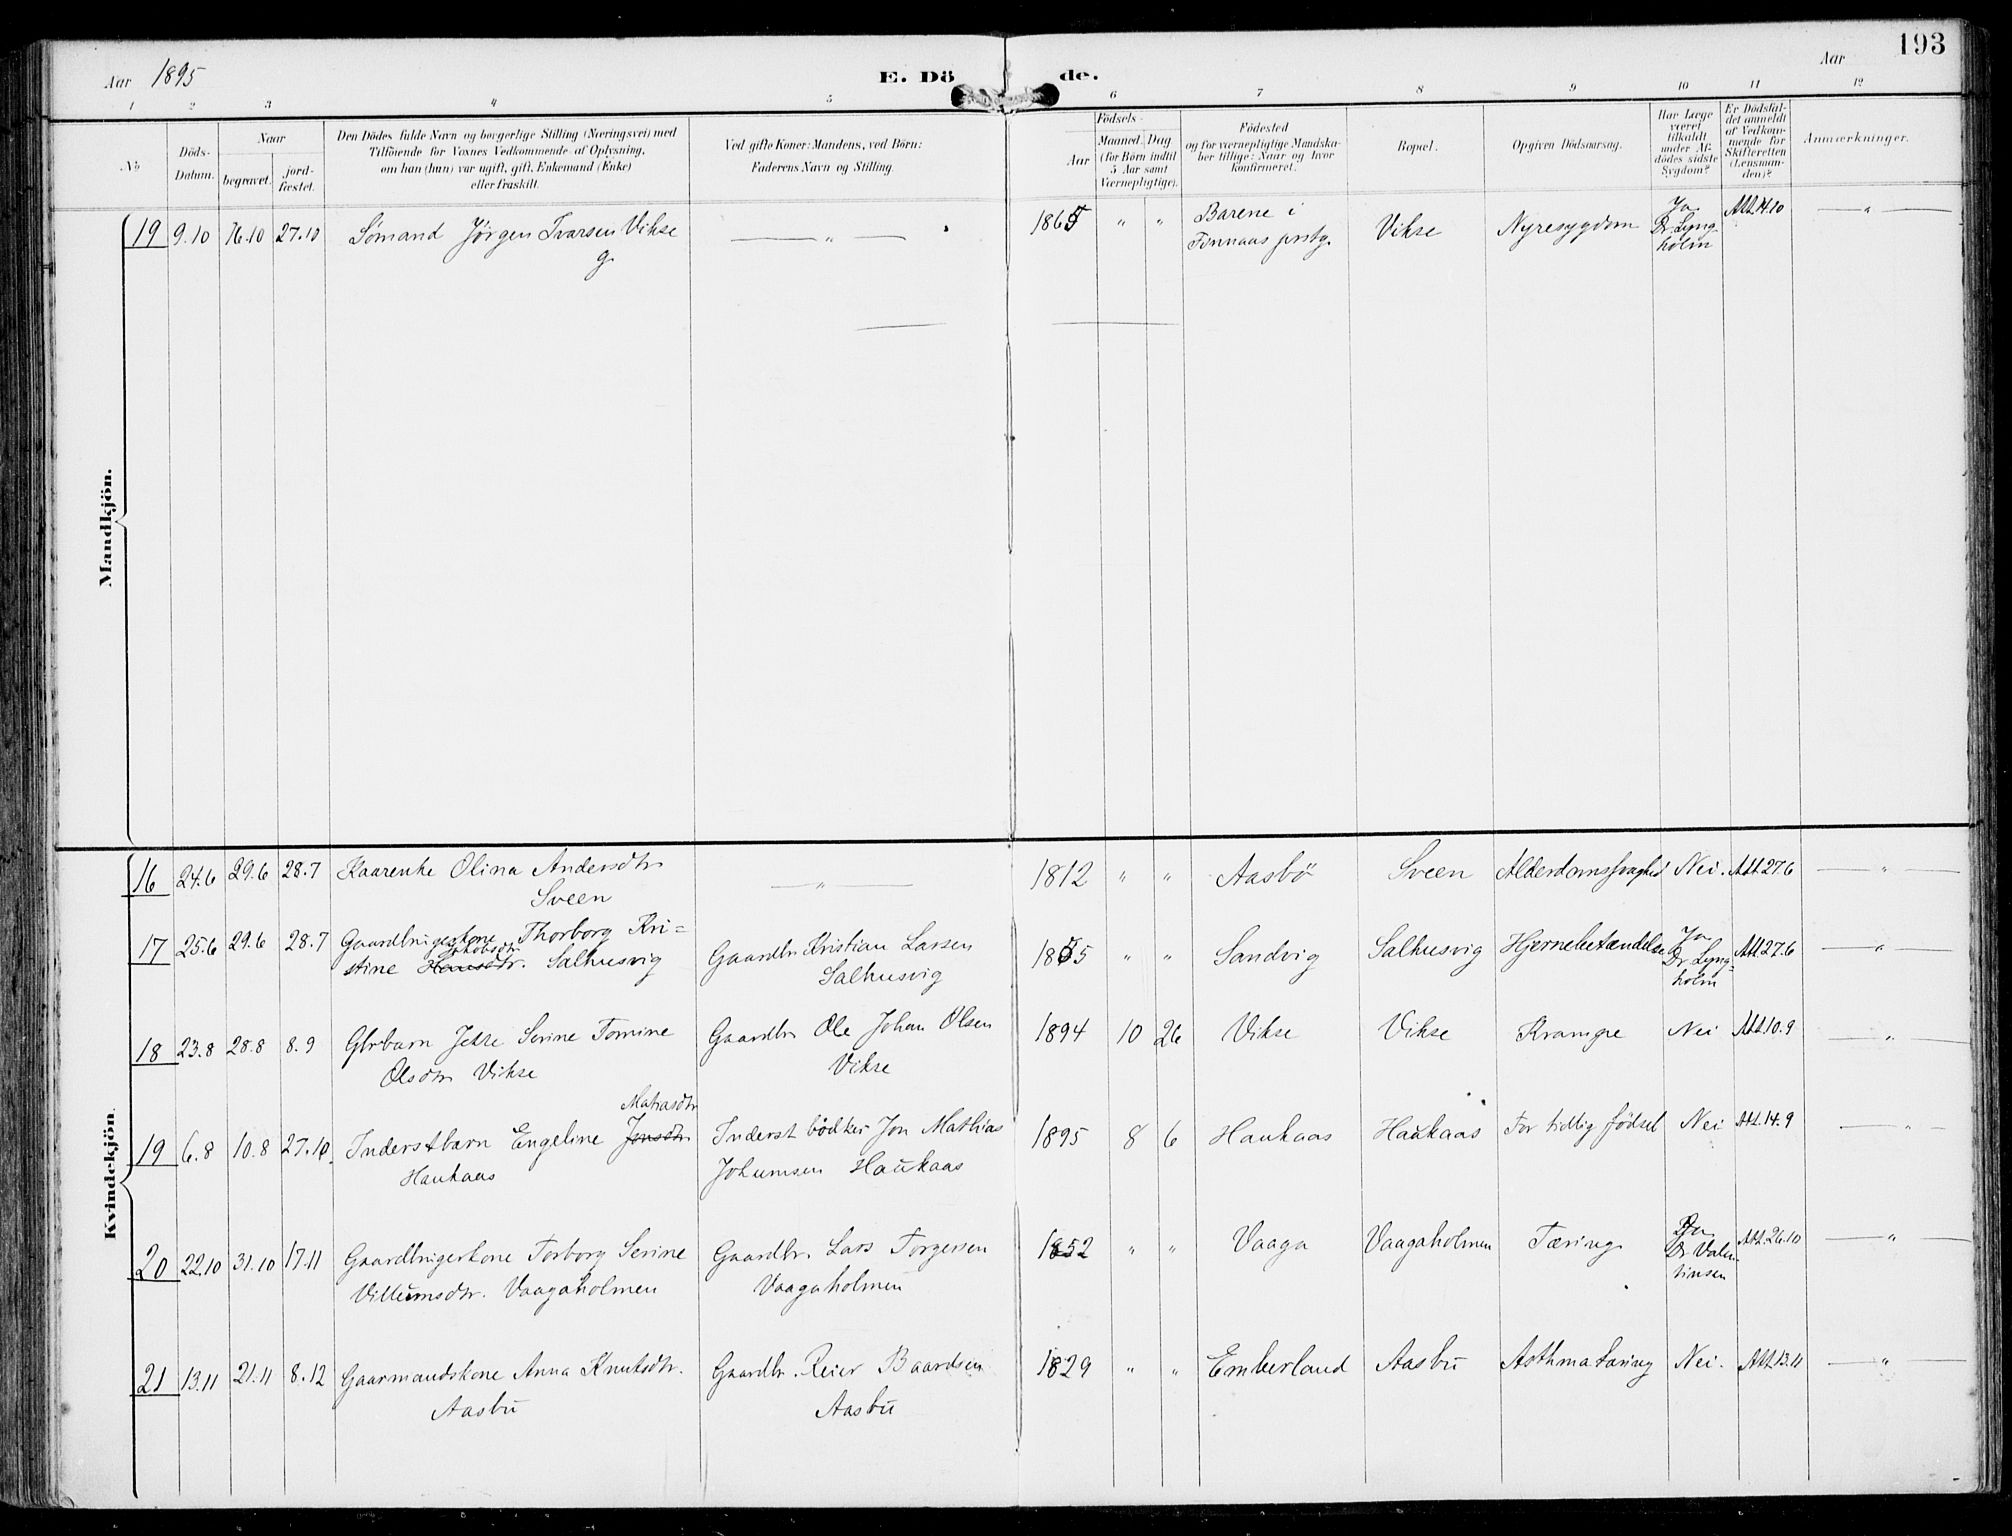 193
Aar 1895
E. Dö de.
Aar
1 2 3 4 5 6 7 8 9 10 11 12
No
Döds-Datum.
Naar
begravet.
jord-fæstet.
Den Dödes fulde Navn og borgerlige Stilling (Næringsvei) med
Tilföiende for Voxnes Vedkommende af Oplysning,
om han (hun) var ugift, gift, Enkemand (Enke)
eller fraskilt.
Ved gifte Koner: Mandens, ved Börn:
Faderens Navn og Stilling.
Födsels-
Aar
Maaned. Dag
(for Börn indtil
5 Aar samt
Værnepligtige).
Födested
og for værnepligtige Mandska-
ber tillige: Naar og hvor
konfirmeret.
Bopæl.
Opgiven Dödsaarsag.
Har Læge
været
tilkaldt
under Af-
dödes sidste
Sygdom?
Er Dödsfal-
det anmeldt
af Vedkom-
mende for
Skifteretten
(Lensman-
den)?
Anmærkninger.
Mandkjön.
19 9.10 16.10 27.10 Sømand Jørgen Ivarsen Vikse — " — 1865 " " Barene i Vikse Nyresygdom Ja Att. 14.10 — " —
g. Finnaas prstg. Dr Lyng-
holm
Kvindekjön.
16 24.6 29.6 28.7 Kaarenke Olina Andersdtr — " — 1812 " " Aasbö Sveen Alderdomssvaghed Nei. Att 27.6 — " —
Sveen
17 25.6 29.6 28.7 Gaardbrugerskone Thorborg Kri= Gaardbr Kristian Larsen 1855 " " Sandvig Salhusvig Hjernebetændelse Ja Att 27.6 — " —
Jakobsdtr
stine Hansdtr. Salhusvig Salhusvig Dr Lyng-
holm
18 23.8 28.8 8.9 Gbrbarn Jette Serine Tomine Gaardbr Ole Johan Olsen 1894 10 26 Vikse Vikse Krampe Nei Att 10.9 — " —
Olsdtr Vikse Vikse
Matiasdtr
19 6.8 10.8 27.10 Inderstbarn Engeline Jonsdtr Inderst bödker Jon Mathias 1895 8 6 Haukaas Haukaas For tidlig födsel Nei Att. 14.9 — " —
Haukaas Johannsen Haukaas
20 22.10 31.10 17.11 Gaardbrugerkone Torborg Serine Gaardbr. Lars Torgersen 1852 " " Vaaga Vaagaholmen Tæring Ja Att 26.10 — " —
Villumsdtr. Vaagaholmen Vaagaholmen Dr Valen-
tinsen
21 13.11 21.11 8.12 Gaarmandskone Anna Knutsdtr. Gaardbr. Reier Baardsen 1829 " " Emberland Aasbu Asthma tæring Nei. Att 13.11 — " —
Aasbu Aasbu